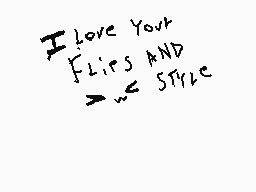 I Love Your
FLiPS AND
STYLE
>w<